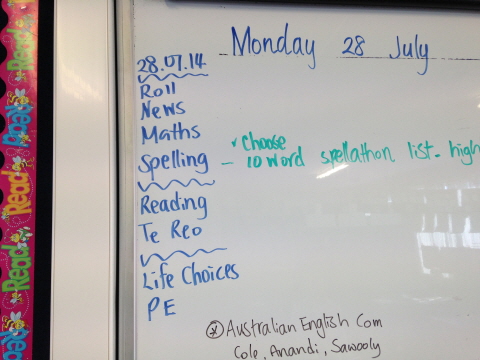 Monday 28 July
28.07.14
Roll
News
Maths
* Choose
Spelling – 10 word spellathon list. high
Reading
Te Reo
Life Choices
PE
* Australian English Com
Cole, Anandi, Sawooly
Read
Read
Read
Read
Read
Read